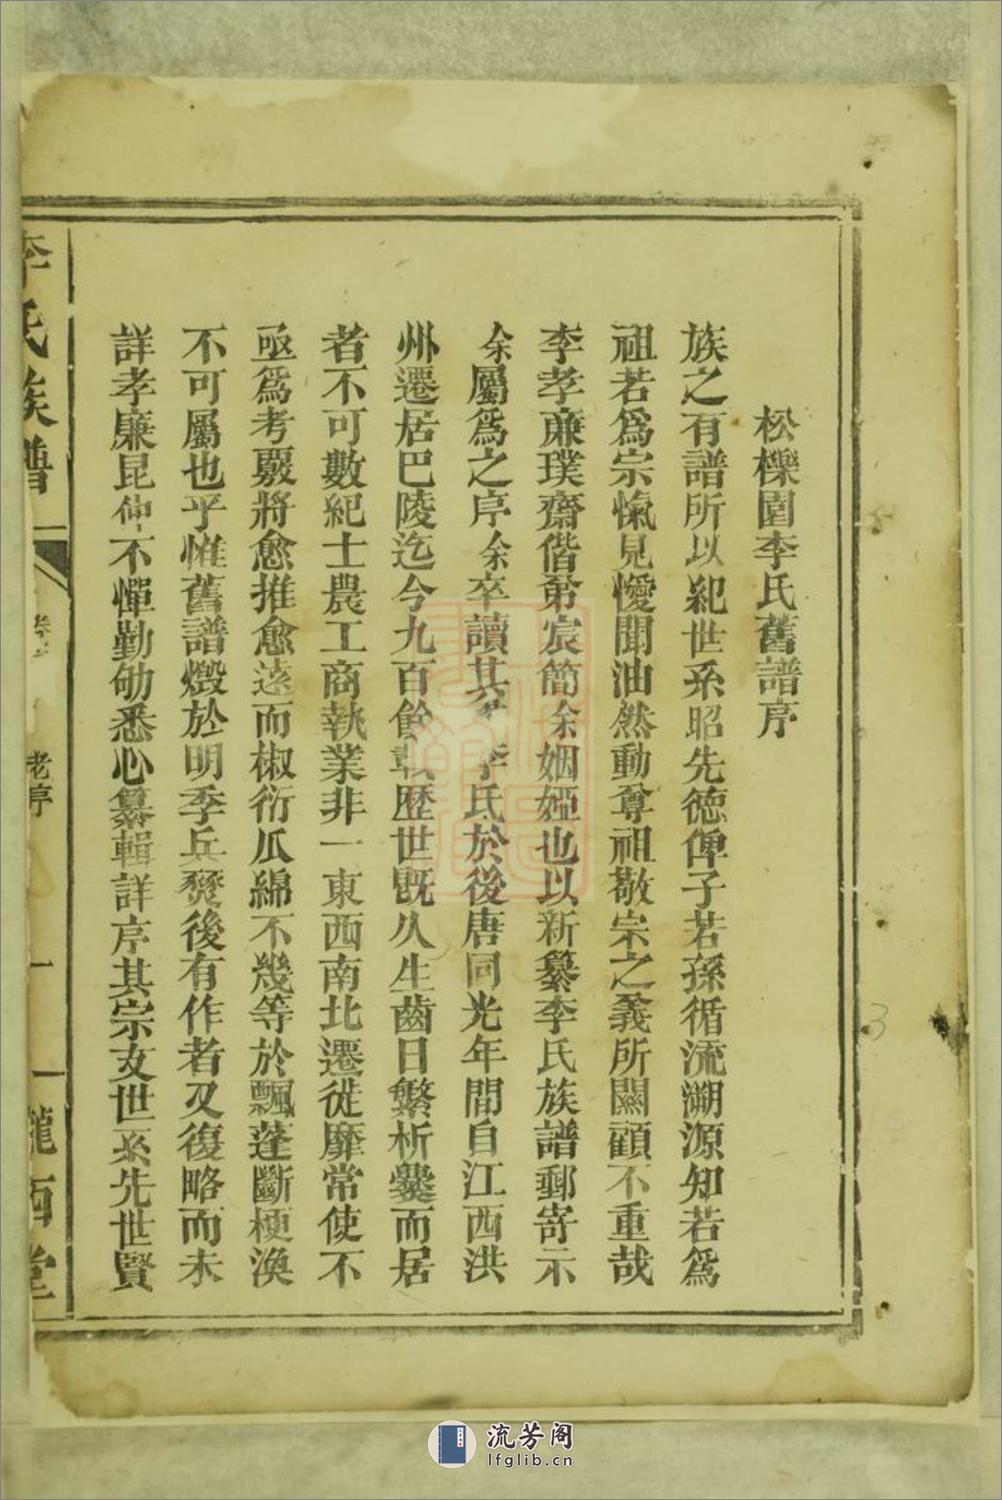 松櫟園李氏舊譜序
族之有譜所以紀世系昭先德俾子若孫循流溯源知若爲
祖若爲宗愾見僾聞油然動尊祖敬宗之義所關顧不重哉
李孝亷璞齋偕弟宸簡余姻婭也以新纂李氏族譜郵寄示
余屬爲之序余卒讀其 李氏於後唐同光年間自江西洪
州遷居巴陵迄今九百餘載歴世旣乆生齒日繁析爨而居
者不可數紀士農工商執業非一東西南北遷徙靡常使不
亟爲考覈將愈推愈遠而椒衍瓜綿不幾等於飄蓬斷梗渙
不可屬也乎惟舊譜燬於明季兵燹後有作者又復略而未
詳孝廉昆仲不憚勤劬悉心纂輯詳序其宗支世系先世賢
李氏族譜
老序
一
隴西堂
3
流芳阁
lfglib.cn